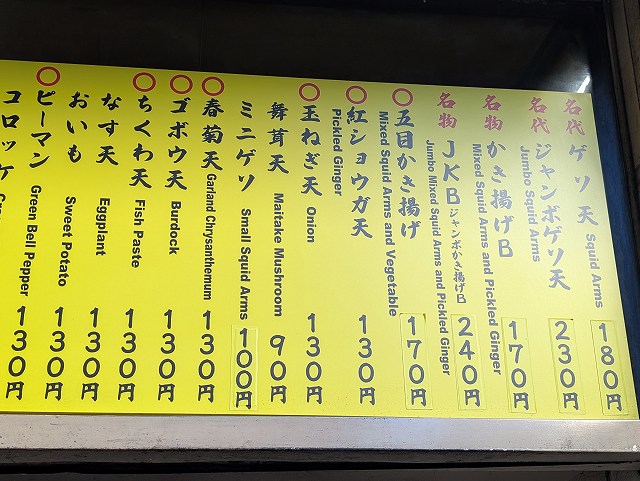 名代 ゲソ天 Squid Arms 180円
名代 ジャンボゲソ天 Jumbo Squid Arms 230円
名物 かき揚げB Mixed Squid Arms and Pickled Ginger 170円
名物 JKB ジャンボかき揚げB Jumbo Mixed Squid Arms and Pickled Ginger 240円
○ 五目かき揚げ Mixed Squid Arms and Vegetable 170円
○ 紅ショウガ天 Pickled Ginger 130円
○ 玉ねぎ天 Onion 130円
舞茸天 Maitake Mushroom 90円
ミニゲソ Small Squid Arms 100円
○ 春菊天 Garland Chrysanthemum 130円
○ ゴボウ天 Burdock 130円
○ ちくわ天 Fish Paste 130円
なす天 Eggplant 130円
おいも Sweet Potato 130円
○ ピーマン Green Bell Pepper 130円
コロッケ